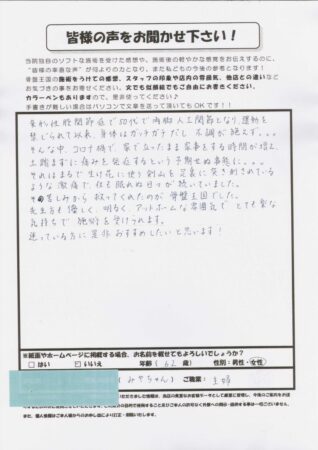 皆様の声をお聞かせ下さい!
当院独自のソフトな施術を受けた感想や、施術後の軽やかな感覚をお伝えするのに、
"皆様の率直な声"が何よりの力となり、また私どもの今後の参考となります!
骨盤王国の施術をうけての感想、スタッフの印象や店内の雰囲気、他店との違いなど
お気づきの事をお書きください。文でも似顔絵でもご自由にお書きください。
カラーペンもありますので、是非使ってください♪
手書きが難しい場合はパソコンで文章を送って頂いてもOKです!!
変形性股関節症で50代で両脚人工関節となり、運動を
禁じられて以来、身体はガッチガチだし不調が絶えず。。。
そんな中、コロナ禍で、家で立ったまま家事をする時間が増え、
土踏まずに痛みを発症するという予期せぬ事態に。。。
それはまるで生け花に使う剣山を足裏に突き刺されている
ような激痛で、夜も眠れぬ日々が続いていました。
その苦しみから救ってくれたのが骨盤王国でした。
先生方も優しく、明るく、アットホームな雰囲気で とても楽な
気持ちで施術を受けられます。
迷っている方に是非おすすめしたいと思います!
※紙面やホームページに掲載する場合、お名前を載せてもよろしいでしょうか?
はい いいえ 年齢( 62 歳) 性別:男性・女性
(みやちゃん) ご職業: 主婦